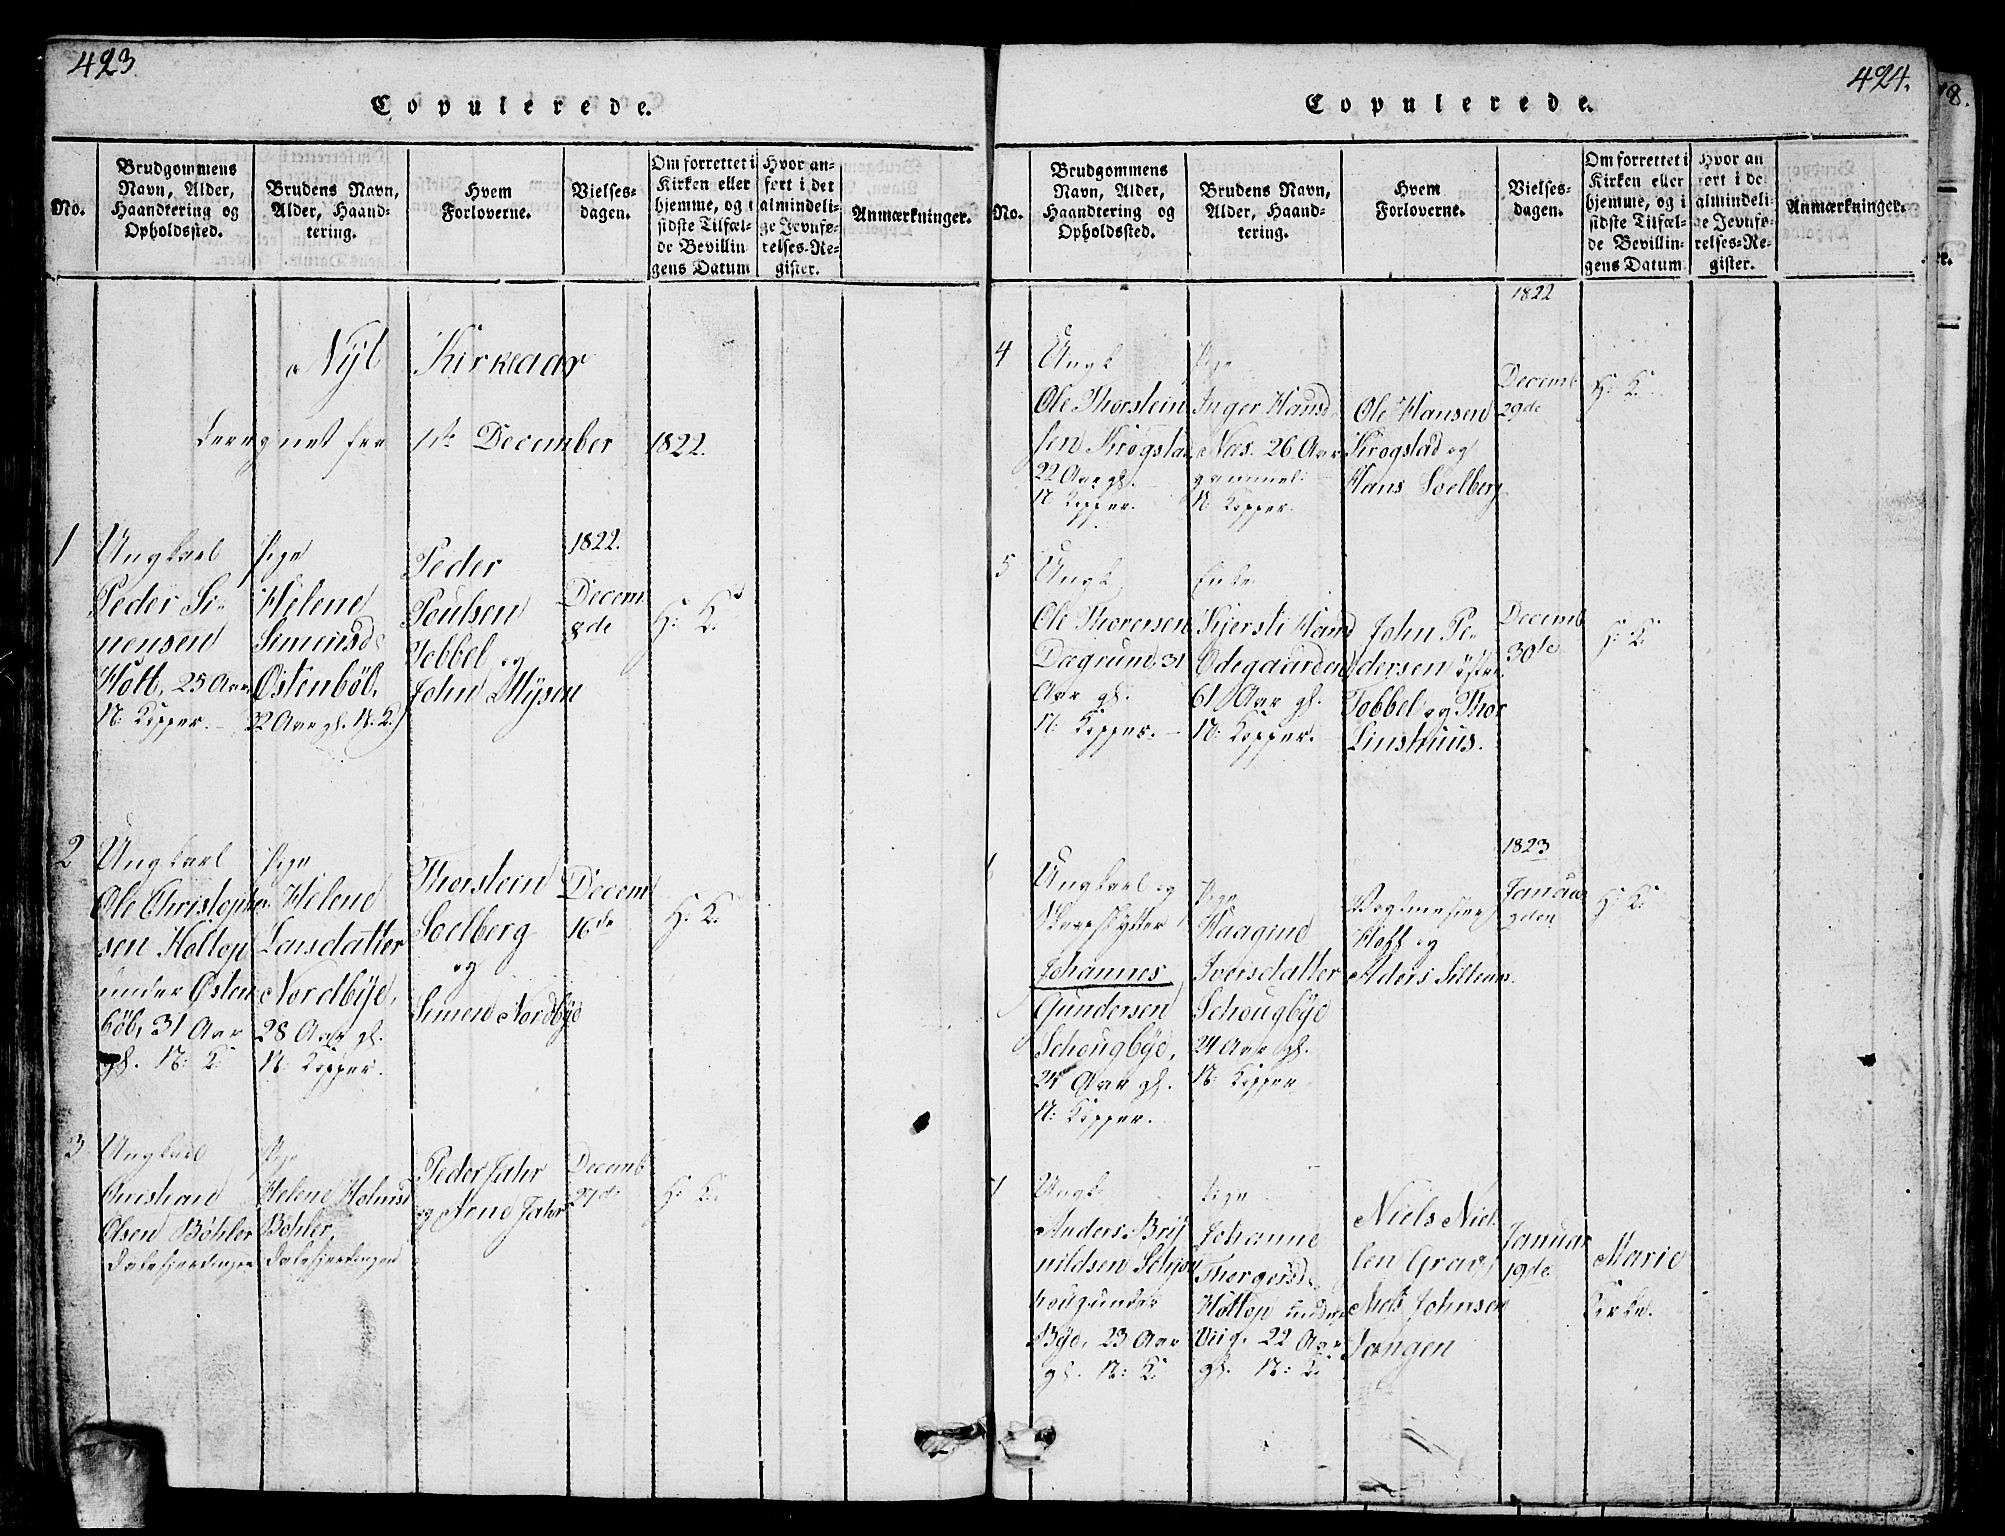 423.
Copulerede.
No.
Brudgommens
Navn, Alder,
Haandtering og
Opholdssted.
Brudens Navn,
Alder, Haand-
tering.
Hvem
Forloverne.
Vielses-
dagen.
Om forrettet i
Kirken eller
hjemme, og i
sidste Tilfæl-
de Bevillin
gens Datum
Hvor an-
ført i det
almindeli-
ge Jevnfø-
relses-Re-
gister.
Anmærkninger.
Nyt Kirkeaar
beregnet fra 1ste December 1822.
1
Ungkarl
Peder Si-
mensen
Hott, 25 Aar
N: Kopper.
Pige
Helene
Simensd
Østenbøl,
22 Aar gl. N: K.
Peder
Poulsen
Tobbel og
John Mysen
1822.
Decem
8de
H: K.
2
Ungkarl
Ole Christopher
sen Holtop
under Østen
bøl, 31 Aar
gl. N: K.
Pige
Helene
Larsdatter
Nordbye,
28 Aar gl.
N: Kopper.
Thorstein
Soelberg
og
Simen Nordbye
Decem
16de
H: K.
3
Ungkarl
Olsen Bøhler
Pige
Helene
Bøhler,
Peder Jahr
og Arne Jahr
Decemb
27de
H: K.
424.
Copulerede.
No.
Brudgommens
Navn, Alder,
Haandtering og
Opholdssted.
Brudens Navn,
Alder, Haand-
tering.
Hvem
Forloverne.
Vielses-
dagen.
Om forrettet i
Kirken eller
hjemme, og i
sidste Tilfæl-
de Bevillin-
gens Datum
Hvor an
ført i de
almindeli-
ge Jevnfø-
relses-Re-
gister.
Anmærkninger.
1822
4
Ungk
Ole Thorstein
sen Krogstad
22 Aar gl.
N: Kopper.
Pige
Inger Hansd
Næs. 26 Aar
gammel
N: Kopper.
Ole Hansen
Krogstad og
Hans Soelberg
Decemb
29de
H: K.
5
Ungk
Ole Thoresen
Dægrund, 31
Aar gl.
N: Kopper.
Enke
Kjersti Hansd
Ødegaarden
61 Aar gl.
N: Kopper.
John Pe-
dersen østre
Tobbel og Thor
Linshuus.
Decemb
30te
H: K.
1823
Ungkarl og
Johannes
Gundersen
Schougbye,
24 Aar gl.
N: Kopper.
Pige
Haagine
Iversdatter
Schougbye
24 Aar gl.
N: Kopper
Hoff og
Januar
9den
H: K.
Ungk.
Anders Bryn
nildsen
under
Bye, 23 Aar
gl. N: K.
Pige
Johanne
Thorgersd
Holtop under
22 Aar
gl. N: K.
Niels Niel
sen Grav,
Niels Johnsen
Tangen
Januar
19de
Marie
Kirke.